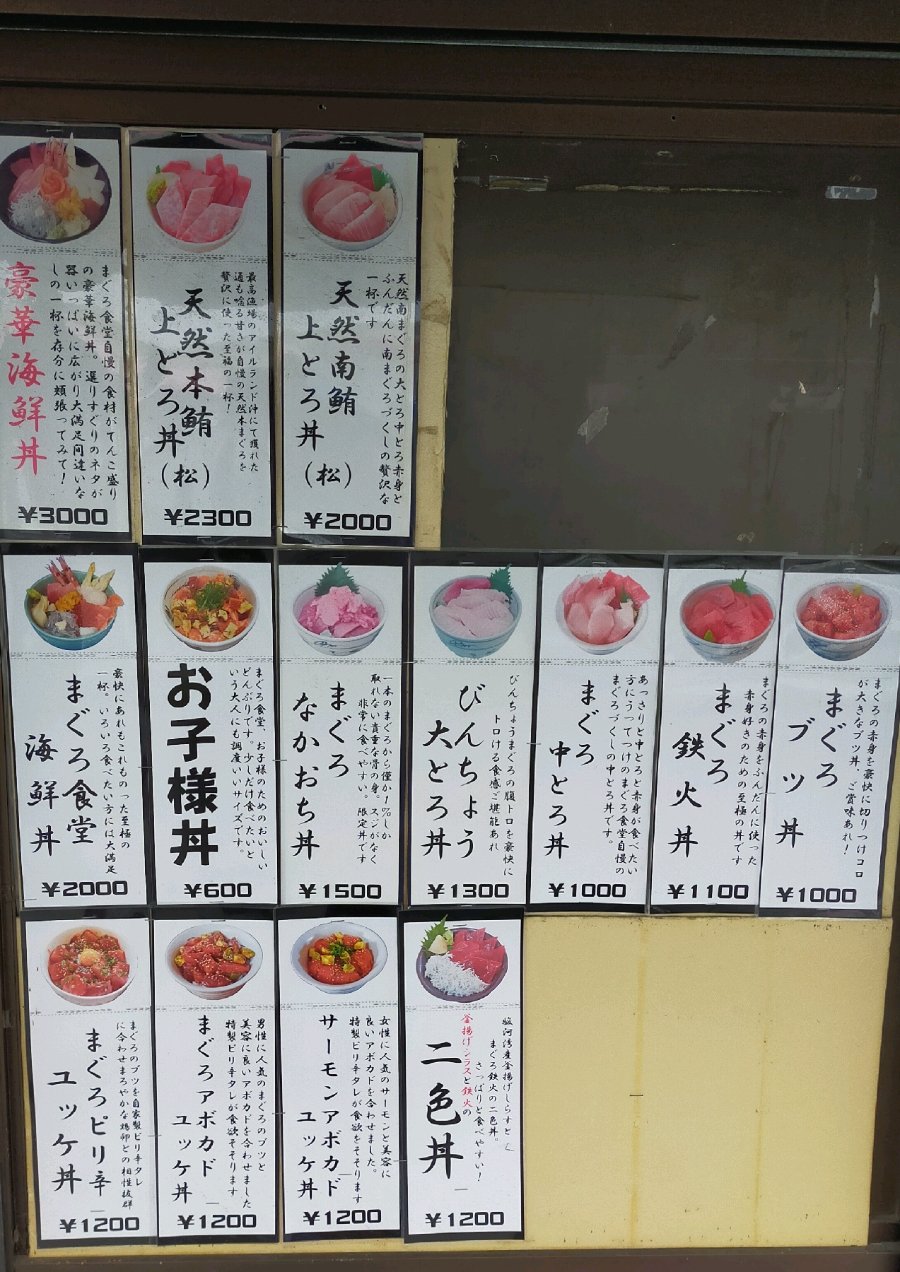 豪華海鮮丼
まぐろ食堂自慢の食材がてんこ盛り
の豪華海鮮丼。選りすぐりのネタが
器いっぱいに広がり大満足間違いな
しの一杯を存分に頬張ってみて！
¥3000
天然本鮪
上とろ丼
（松）
最高漁場のアイルランド沖にて獲れた
通も唸る甘さが自慢の天然本まぐろを
贅沢に使った至福の一杯！
¥2300
天然南鮪
上とろ丼
（松）
天然南まぐろの大とろ中とろ赤身と
ふんだんに南まぐろづくしの贅沢な
一杯です
¥2000
まぐろ食堂
海鮮丼
豪快にあれもこれものった至極の
一杯。いろいろ食べたい方には大満足
¥2000
お子様丼
まぐろ食堂、お子様のためのおいしい
どんぶりです少しだけ食べたいと
いう大人にも調度いいサイズです。
¥600
まぐろ
なかおち丼
一本のまぐろから僅か1%しか
取れない貴重な骨の身。スジがなく
非常に食べやすい。限定丼です
¥1500
びんちょう
大とろ丼
びんちょうまぐろの腹トロを豪快に
トロける食感ご堪能あれ
¥1300
まぐろ
中とろ丼
あっさりと中とろと赤身が食べたい
方にうってつけのまぐろ食堂自慢の
まぐろづくしの中とろ丼です。
¥1000
まぐろ
鉄火丼
まぐろの赤身をふんだんに使った
赤身好きのための至極の丼です
¥1100
まぐろ
ブツ丼
まぐろの赤身を豪快に切りつけコロコロ
が大きなブツ丼、ご賞味あれ！
¥1000
まぐろピリ辛
ユッケ丼
まぐろのブツを自家製ピリ辛タレ
に合わせまろやかな鶏卵との相性抜群
¥1200
まぐろアボカド
ユッケ丼
男性に人気のまぐろのブツと
美容に良いアボカドを合わせました
特製ピリ辛タレが食欲そそります
¥1200
サーモンアボカド
ユッケ丼
女性に人気のサーモンと美容に
良いアボカドを合わせました。
特製ピリ辛タレが食欲をそそります
¥1200
駿河湾産釜揚げしらすと
まぐろ鉄火の二色丼。
さっぱりと食べやすい！
釜揚げシラスと鉄火の
二色丼
¥1200